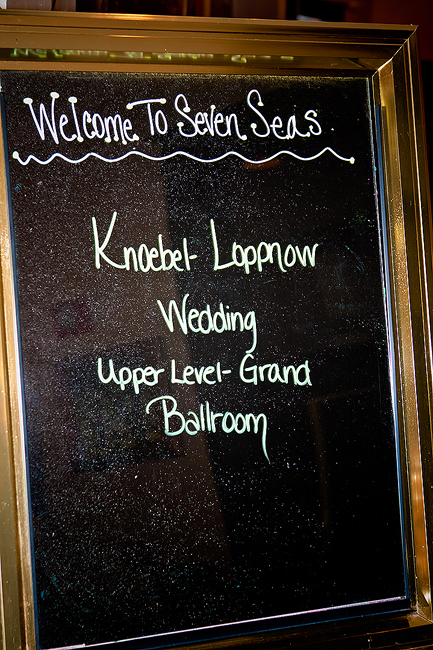 Welcome To Seven Seas.
Knoebel-Loppnow
Wedding
Upper Level-Grand
Ballroom